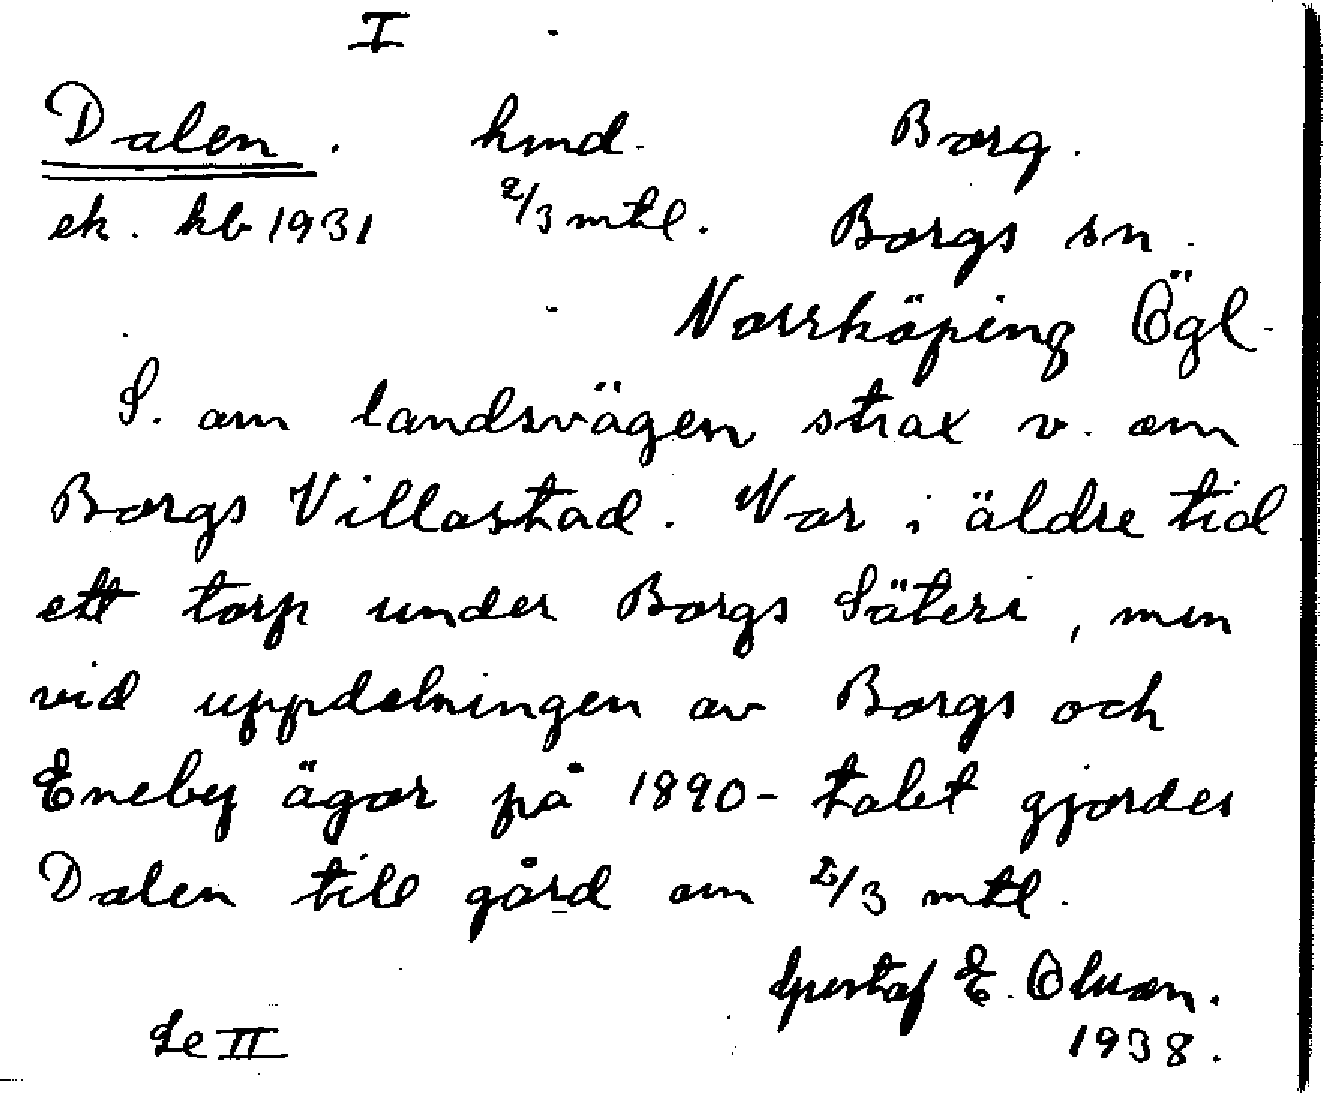 I
Dalen. hmd. Borg.
ek. kb 1931 2/3 mtl. Borgs sn.
Norrköping Ögl.
S. om landsvägen strax v. om
Borgs Villastad. Var i äldre tid
ett torp under Borgs Säteri, men
vid uppdelningen av Borgs och
Eneby ägor på 1890-talet gjordes
Dalen till gård om 2/3 mtl.
Gustaf E. Olsson.
Se II 1938.